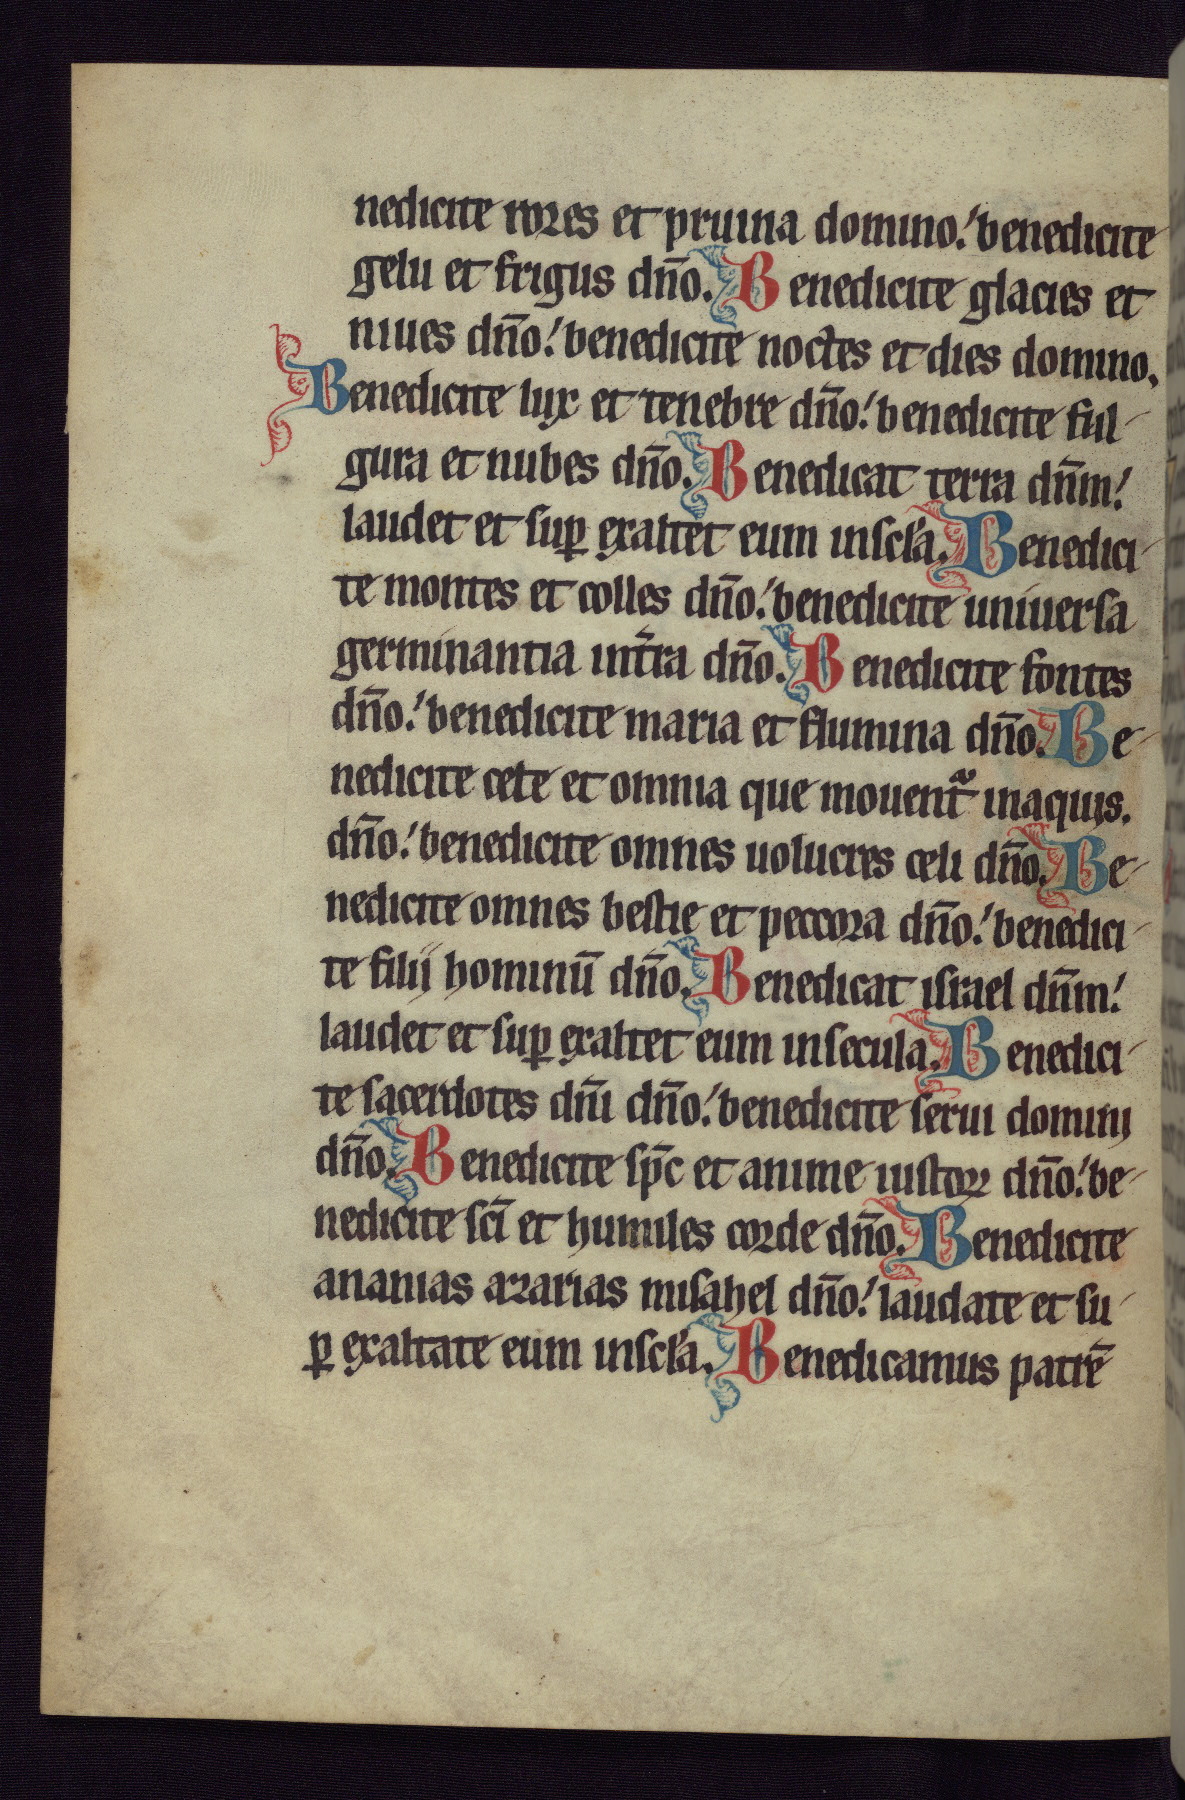 nedicite rores et pruina domino.' benedicite
gelu et frigus dño. Benedicite glacies et
niues dño.' benedicite noctes et dies domino.
Benedicite lux et tenebre dño.' benedicite ful-
gura et nubes dño. Benedicat terra dñm.'
laudet et suꝑ exaltet eum inscła. Benedici-
te montes et colles dño.' benedicite uniuersa
germinantia int̃ra dño. Benedicite fontes
dño.' benedicite maria et flumina dño. Be-
nedicite cete et omnia que mouent᷑ inaquis.
dño.' benedicite omnes uolucres celi dño. Be-
nedicite omnes bestie et peccora dño.' benedici-
te filij hominū dño. Benedicat israel dñm.'
laudet et suꝑ exaltet eum insecula. Benedici-
te sacerdotes dñi dño.' benedicite serui dominj
dño. Benedicite sp̄c et anime iustoꝝ dño.' be-
nedicite sc̄i et humiles corde dño. Benedicite
ananias azarias misahel dño.' laudate et su-
ꝑ exaltate eum inscła. Benedicamus patrē